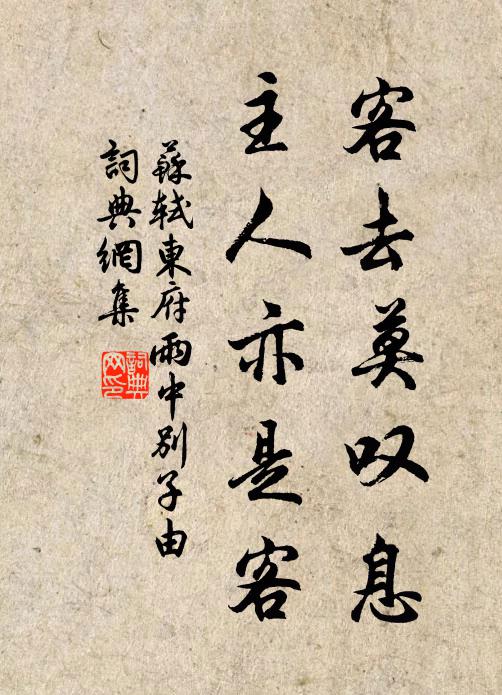 客去莫叹息
主人亦是客
蘇軾東府雨中別子由
詞典網集
詞典
网印